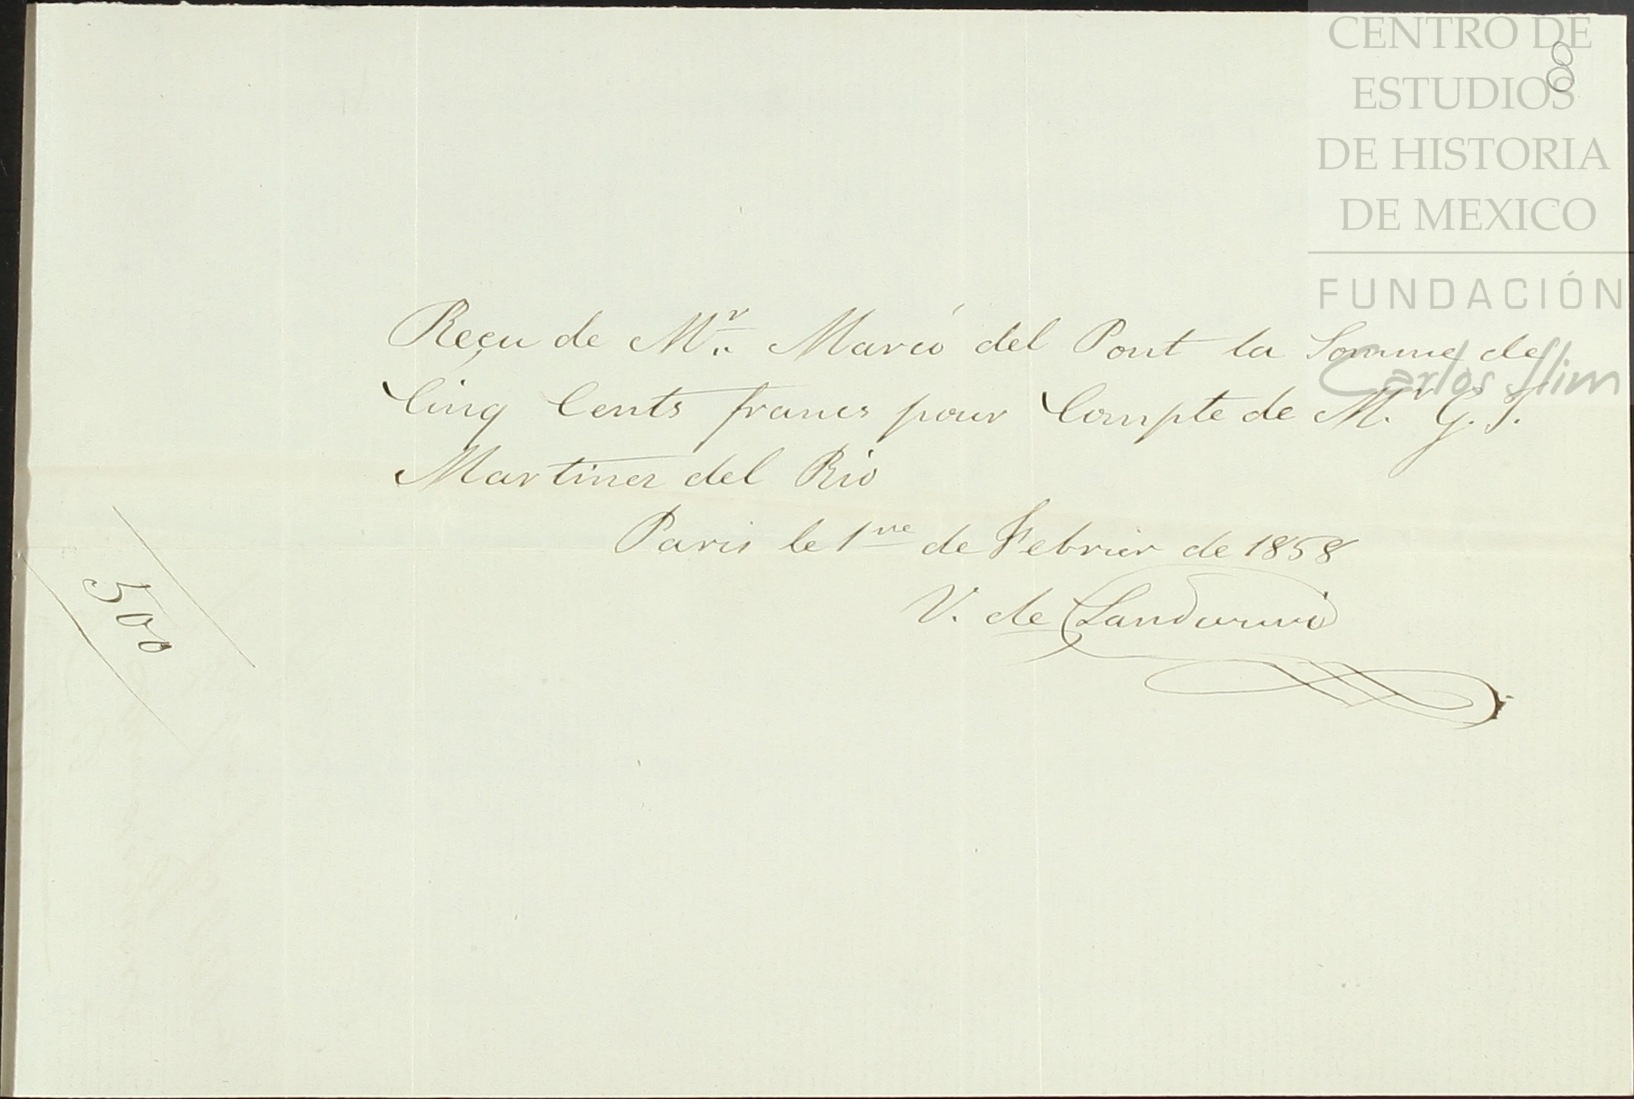 CENTRO DE
ESTUDIOS
DE HISTORIA
DE MEXICO
FUNDACIÓN
Carlos Slim
8
Reçu de Mr. Marcó del Pont la Somme de
Cinq Cents francs pour Compte de Mr. G. S.
Martinez del Rio
Paris le 1re de Febrier de 1858
V. de
500